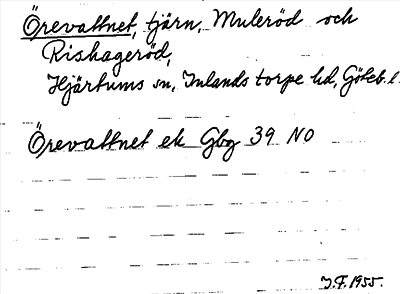 Örevattnet, tjärn, Muleröd och
Rishageröd,
Hjärtums sn, Inlands torpe hd, Göteb. l.
Örevattnet ek Gbg 39 NO
J.F. 1955.